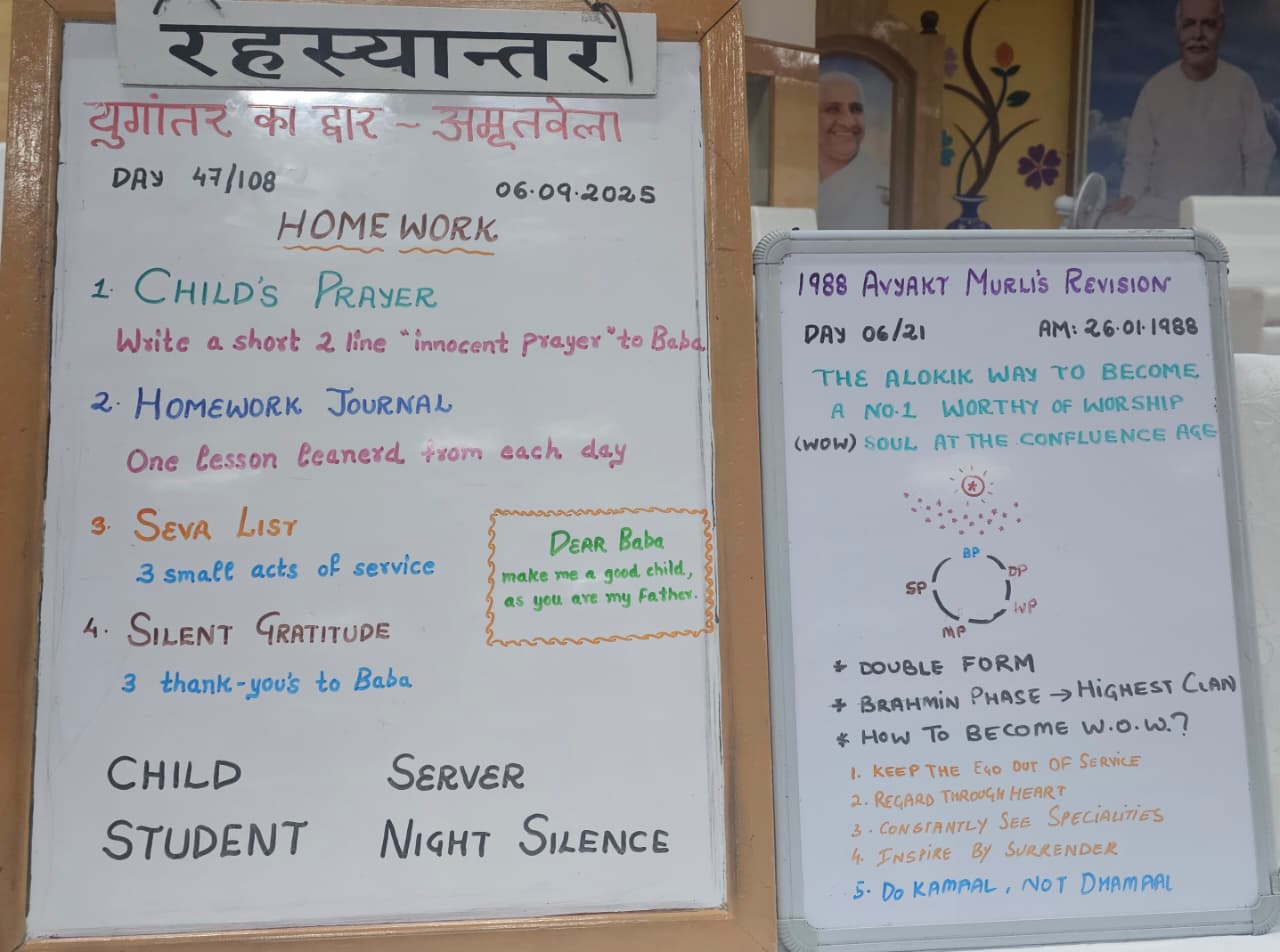 रहस्यान्तर
युगांतर का द्वार ~ अमृतवेला
DAY 47/108 06.09.2025
HOME WORK
1. CHILD'S PRAYER
Write a short 2 line "innocent prayer" to Baba
2. HOMEWORK JOURNAL
One lesson leanerd from each day
3. SEVA LIST
3 small acts of service
DEAR Baba
make me a good child,
as you are my Father.
4. SILENT GRATITUDE
3 thank-you's to Baba
CHILD SERVER
STUDENT NIGHT SILENCE
1988 AVYAKT MURLI'S REVISION
DAY 06/21 AM: 26.01.1988
THE ALOKIK WAY TO BECOME
A NO.1 WORTHY OF WORSHIP
(WOW) SOUL AT THE CONFLUENCE AGE
BP
DP
WP
MP
SP
* DOUBLE FORM
* BRAHMIN PHASE → HIGHEST CLAN
* HOW TO BECOME W.O.W.?
1. KEEP THE EGO OUT OF SERVICE
2. REGARD THROUGH HEART
3. CONSTANTLY SEE SPECIALITIES
4. INSPIRE BY SURRENDER
5. DO KAMAAL, NOT DHAMAAL